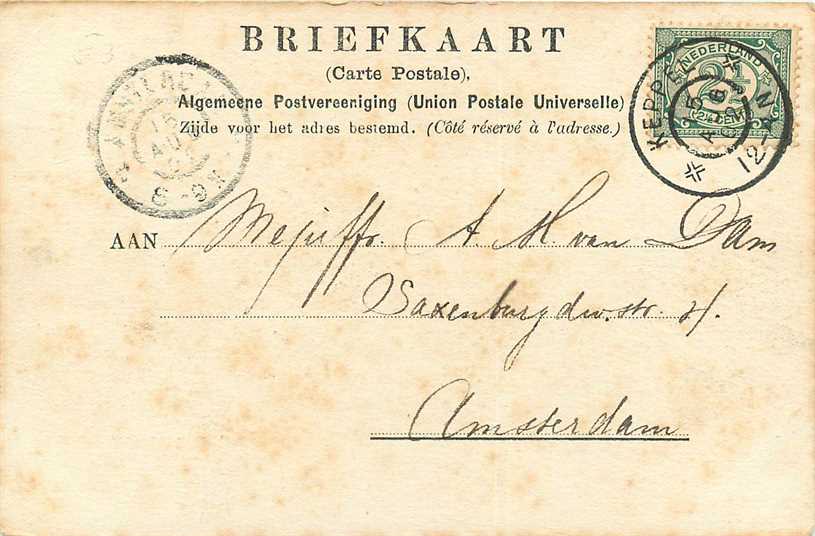 BRIEFKAART
(Carte Postale),
Algemeene Postvereeniging (Union Postale Universelle)
Zijde voor het adres bestemd. (Côté réservé à l'adresse.)
NEDERLAND
2½
KEPPEL
12-
N
AMSTERDAM
15
AUG
8-9
AAN Mejuffr. A. M. van Dam
Saxenburgdw.str.
Amsterdam